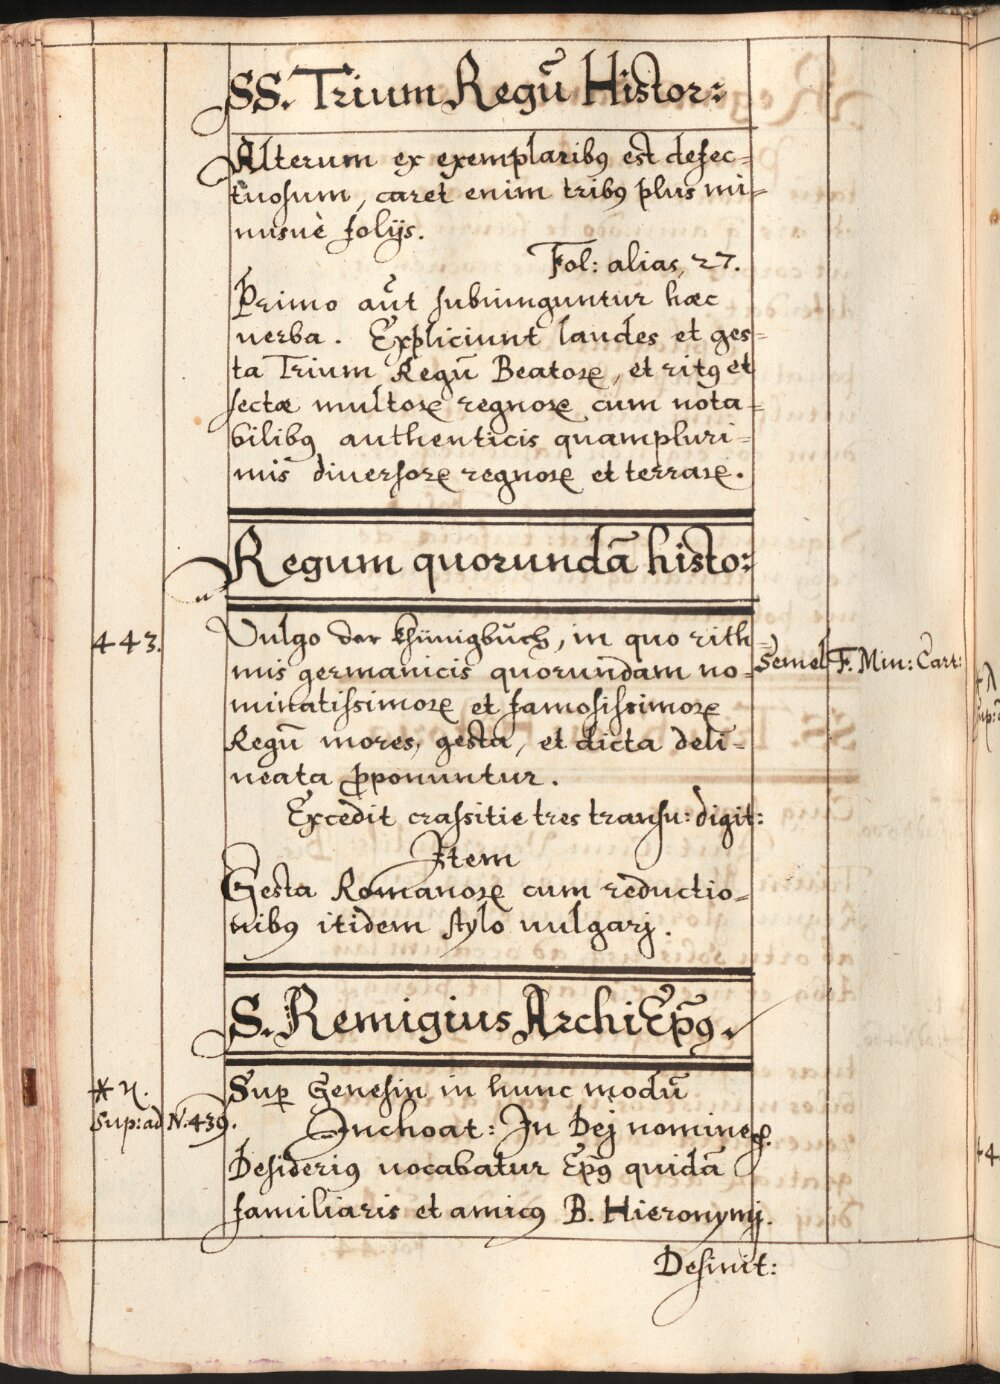 SS. Trium Regū Histor:
Alterum ex exemplaribꝰ est defec=
tuosum, caret enim tribꝰ plus mi=
nusuè folijs.
Fol: alias, 27.
Primo aūt subiunguntur hæc
uerba. Expliciunt laudes et ges=
ta Trium Regū Beatorꝝ, et ritꝰ et
sectæ multorꝝ regnorꝝ cum nota=
bilibꝰ authenticis quampluri=
mis diuersorꝝ regnorꝝ et terrarꝝ.
Regum quorundā histo:
443. Vulgo der Khünigbůch, in quo rith=
mis germanicis quorundam no= Semel F. Min: Cart:
minatissimorꝝ et famosissimorꝝ
Regū mores, gesta, et dicta deli=
neata ꝓponuntur.
Excedit crassitie tres transu: digit:
Item
Gesta Romanorꝝ cum reductio=
nibꝰ itidem stylo uulgarj.
S. Remigius ArchiEp̄ꝰ.
Suꝑ Genesin in hunc modū
Sup: ad N. 439.
Inchoat: In Dej nomine
Desideriꝰ uocabatur Ep̄ꝰ quidā
familiaris et amicꝰ B. Hieronymj.
Desinit: